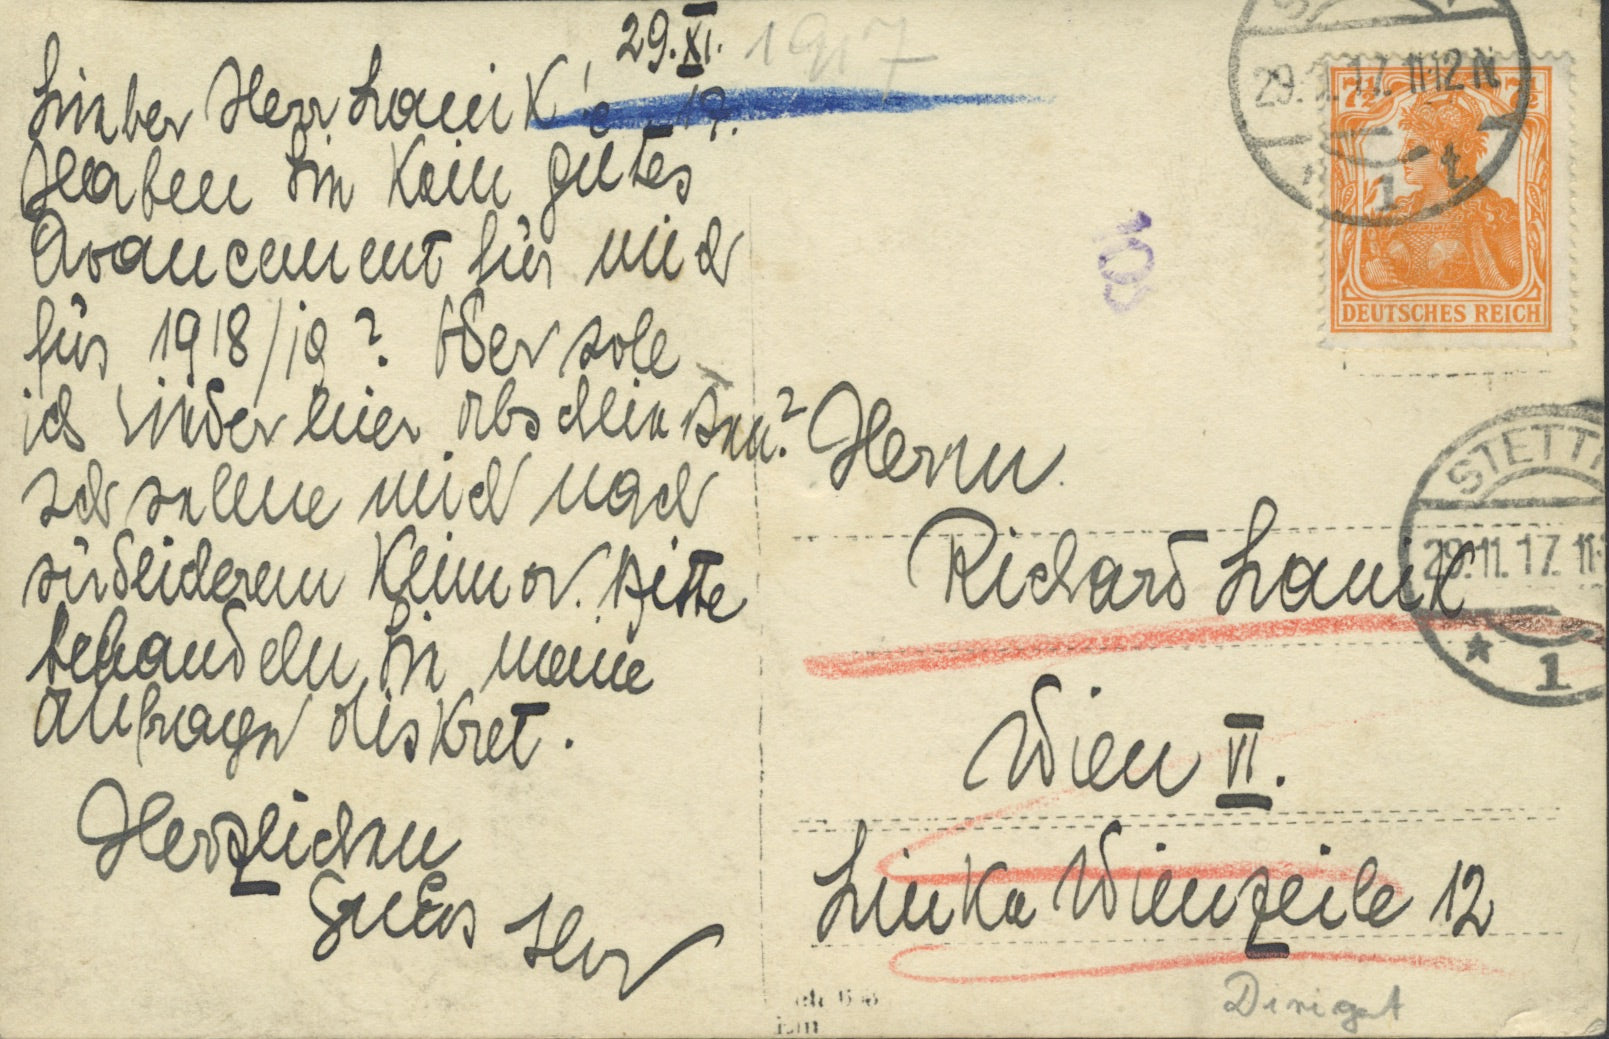 29.XI.
1917
Lieber Herr Lanik!
Haben Sie kein gutes
Avancement für mich
für 1918/19? Oder soll
ich wieder hier abschließen?
Ich sehne mich nach
südlicherem Klima. Bitte
behandeln Sie meine
Anfrage diskret.
Herzlichen
Gruß Ihr
29.11.17. 11-12 N.
7½ 7½
DEUTSCHES REICH
STETTI
29.11.17. 11
* 1
Herrn
Richard Lanik
Wien VI.
Linke Wienzeile 12
Dirigent